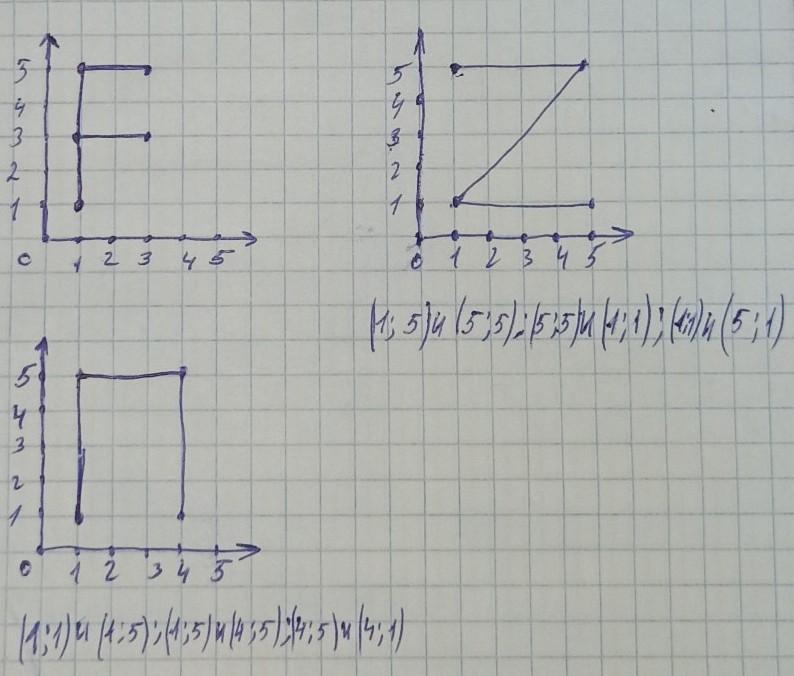 5
4
3
2
1
0 1 2 3 4 5
5
4
3
2
1
0 1 2 3 4 5
(1; 5) и (5; 5); (5; 5) и (1; 1); (1; 1) и (5; 1)
5
4
3
2
1
0 1 2 3 4 5
(1; 1) и (1; 5); (1; 5) и (4; 5); (4; 5) и (4; 1)